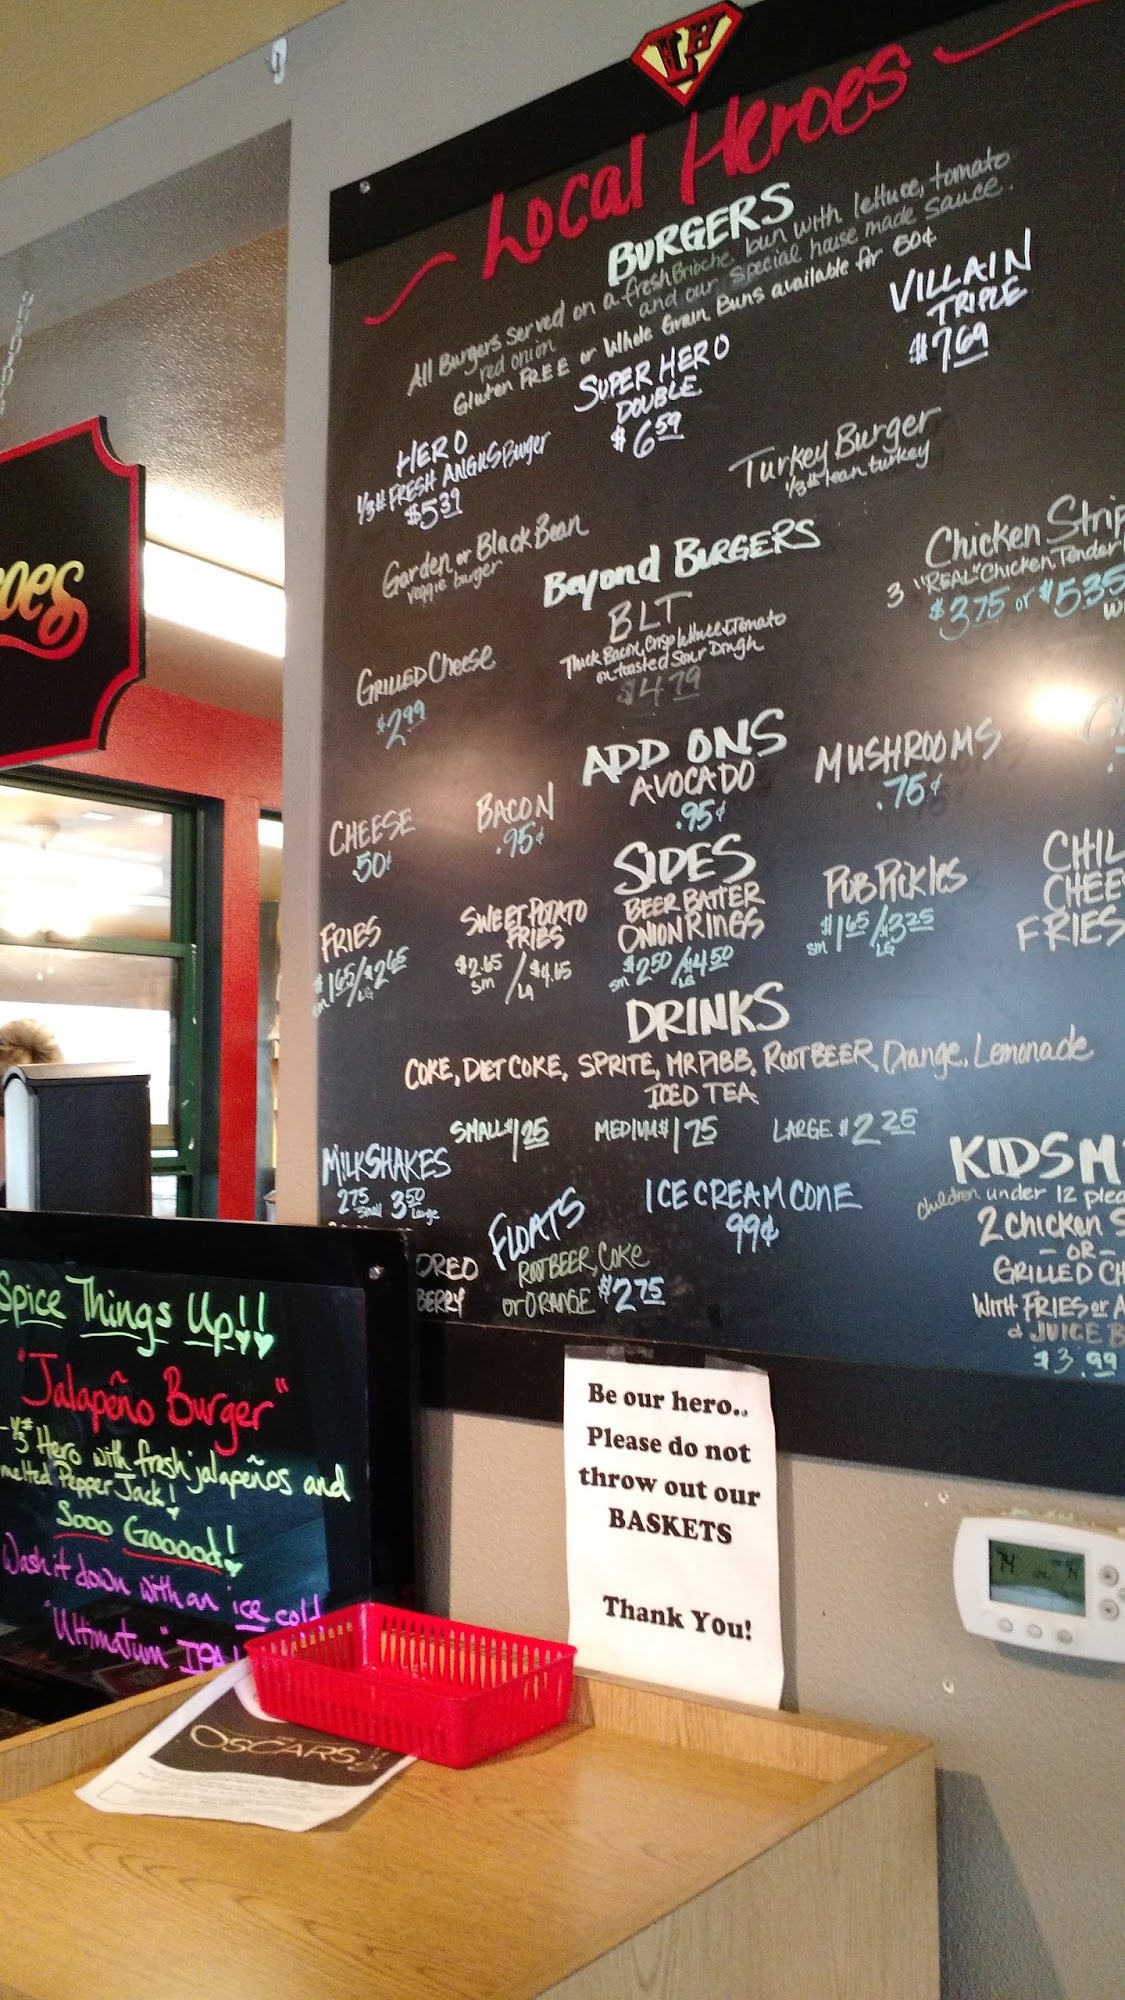 LH
Local Heroes
BURGERS
All Burgers served on a fresh Brioche bun with lettuce, tomato
red onion and our special house made sauce.
Gluten FREE or Whole Grain Buns available for 50¢
HERO
1/3# FRESH ANGUS Burger
$5.39
SUPER HERO
DOUBLE
$6.59
VILLAIN
TRIPLE
$7.69
Garden or Black Bean
veggie burger
Turkey Burger
1/3# lean turkey
Beyond BURGERS
GRILLED Cheese
$2.99
BLT
Thick Bacon, Crisp lettuce & Tomato
on toasted Sour Dough
$4.79
Chicken Strip
3 "REAL" Chicken Tender
$3.75 or $5.35
W
ADD ONS
CHEESE
.50¢
BACON
.95¢
AVOCADO
.95¢
MUSHROOMS
.75¢
SIDES
FRIES
$1.65/$2.65
sm LG
SWEET POTATO
FRIES
$2.65/$4.65
sm LG
BEER BATTER
ONION RINGS
$2.50/$4.50
sm LG
PUB PICKLES
$1.65/$3.25
sm LG
CHIL
CHEE
FRIES
DRINKS
COKE, DIET COKE, SPRITE, MR PIBB, ROOT BEER, Orange, Lemonade
ICED TEA
SMALL $1.25 MEDIUM $1.75 LARGE $2.25
MILKSHAKES
2.75 small 3.50 Large
OREO
BERRY
FLOATS
ROOT BEER, Coke
or ORANGE $2.75
ICE CREAM CONE
99¢
KIDS M
Children under 12 plea
2 Chicken S
- OR -
GRILLED CH
WITH FRIES or A
& JUICE B
$3.99
oes
Spice Things Up!!
"Jalapeño Burger"
- 1/3# Hero with fresh jalapeños and
melted Pepper Jack!
Sooo Gooood!
Wash it down with an ice cold
"Ultimatum" IPA!
Be our hero..
Please do not
throw out our
BASKETS
Thank You!
74
OSCARS